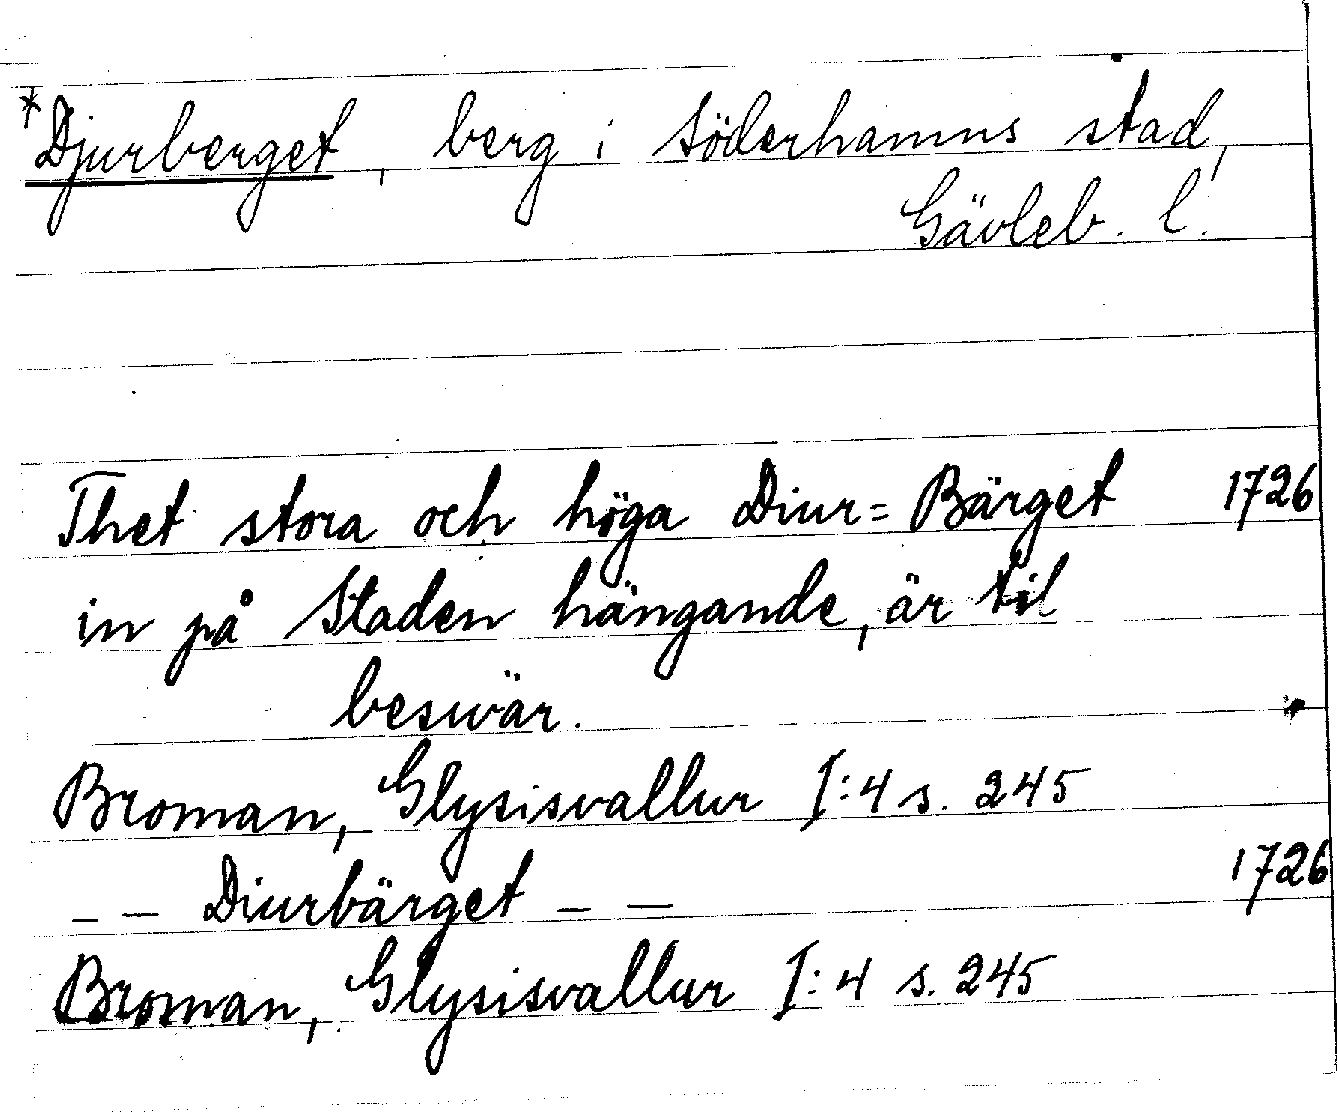 *Djurberget, berg i Söderhamns stad,
Gävleb. l.
Thet stora och höga Diur=Bärget 1726
in på Staden hängande, är til
beswär.
Broman, Glysisvallur I:4 s. 245
_ _ Diurbärget _ _ 1726
Broman, Glysisvallur I:4 s. 245